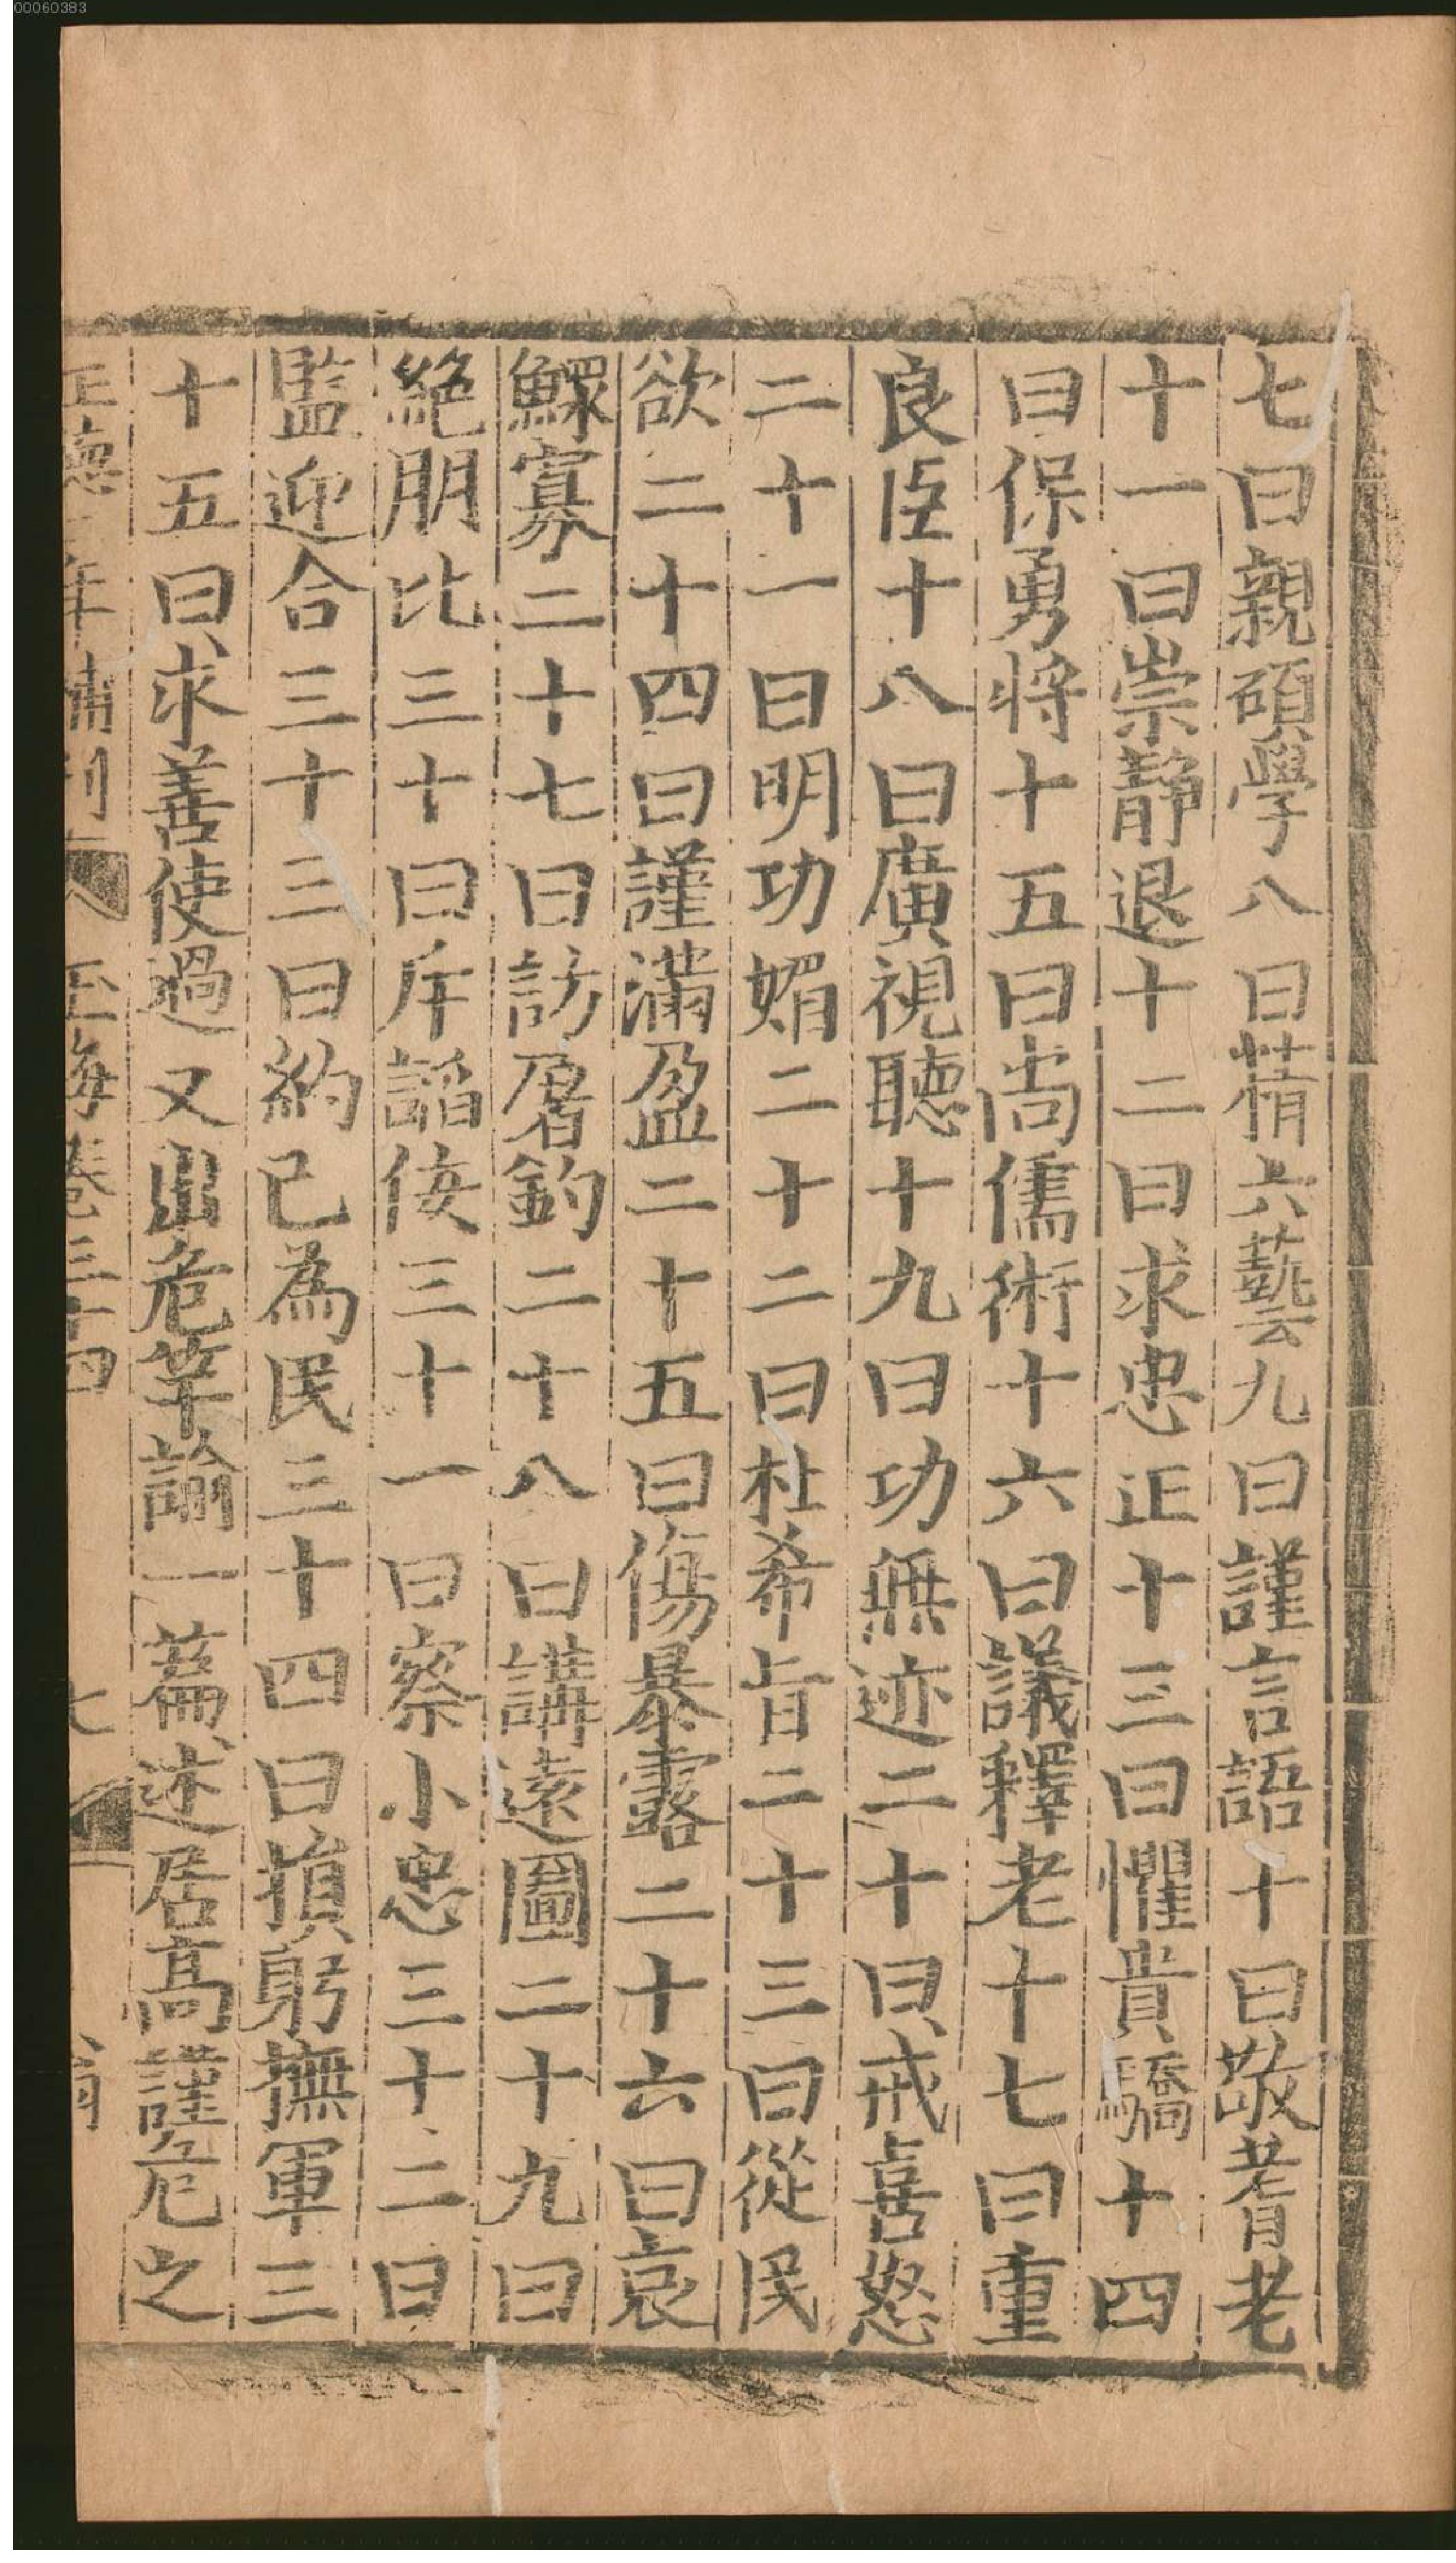 00060383
七曰親碩學八曰精六藝九曰謹言語十曰敬耆老
十一曰崇靜退十二曰求忠正十三曰懼貴驕十四
曰保勇將十五曰尚儒術十六曰議釋老十七曰重
良臣十八曰廣視聽十九曰功無迹二十曰戒喜怒
二十一曰明功媚二十二曰杜希旨二十三曰從民
欲二十四曰謹滿盈二十五曰傷暴露二十六曰哀
鰥寡二十七曰訪屠釣二十八曰講遠圖二十九曰
絶朋比三十曰斥諂佞三十一曰察小忠三十二曰
監迎合三十三曰約己為民三十四曰損躬撫軍三
十五曰求善使過又出危竿諭一篇述居高謹危之
正德二年補刊 玉海卷三十四 七